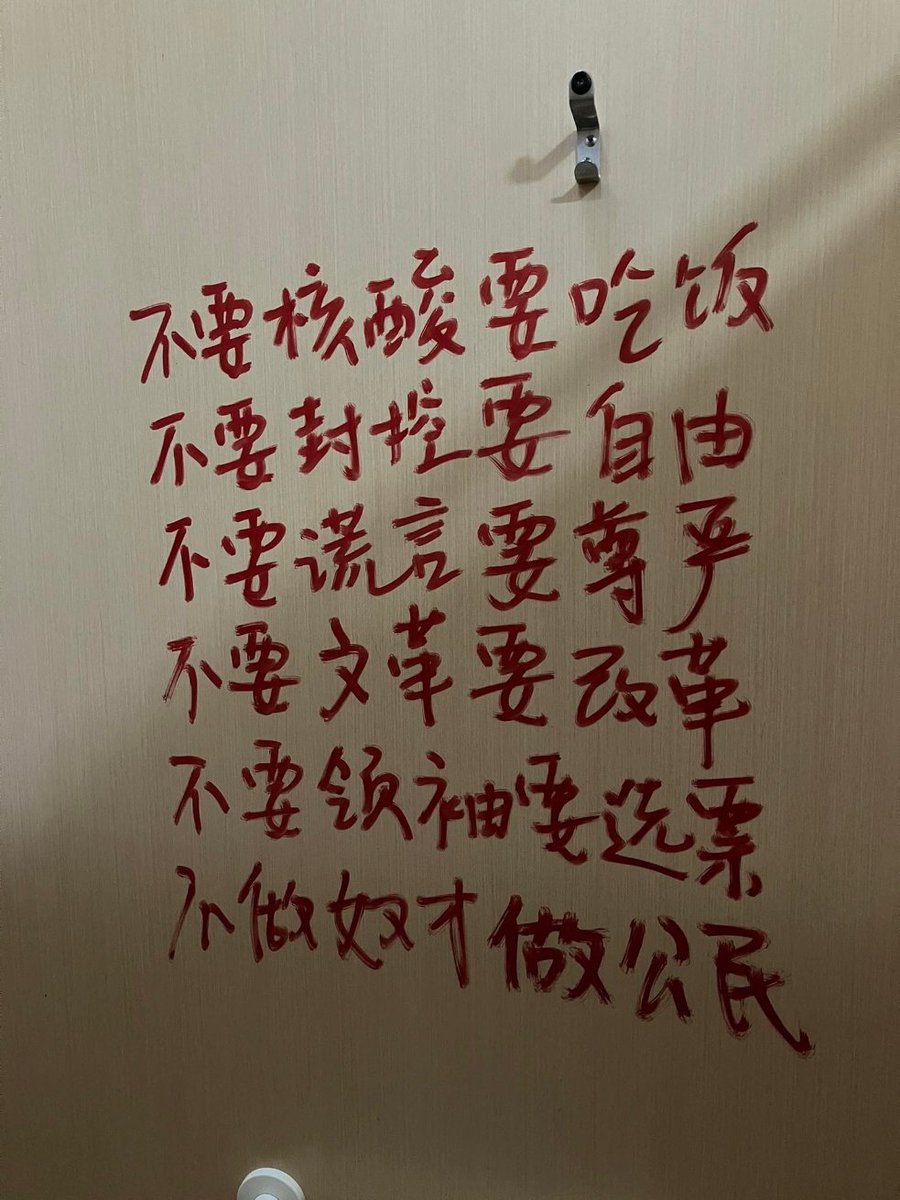 不要核酸要吃饭
不要封控要自由
不要谎言要尊严
不要文革要改革
不要领袖要选票
不做奴才做公民